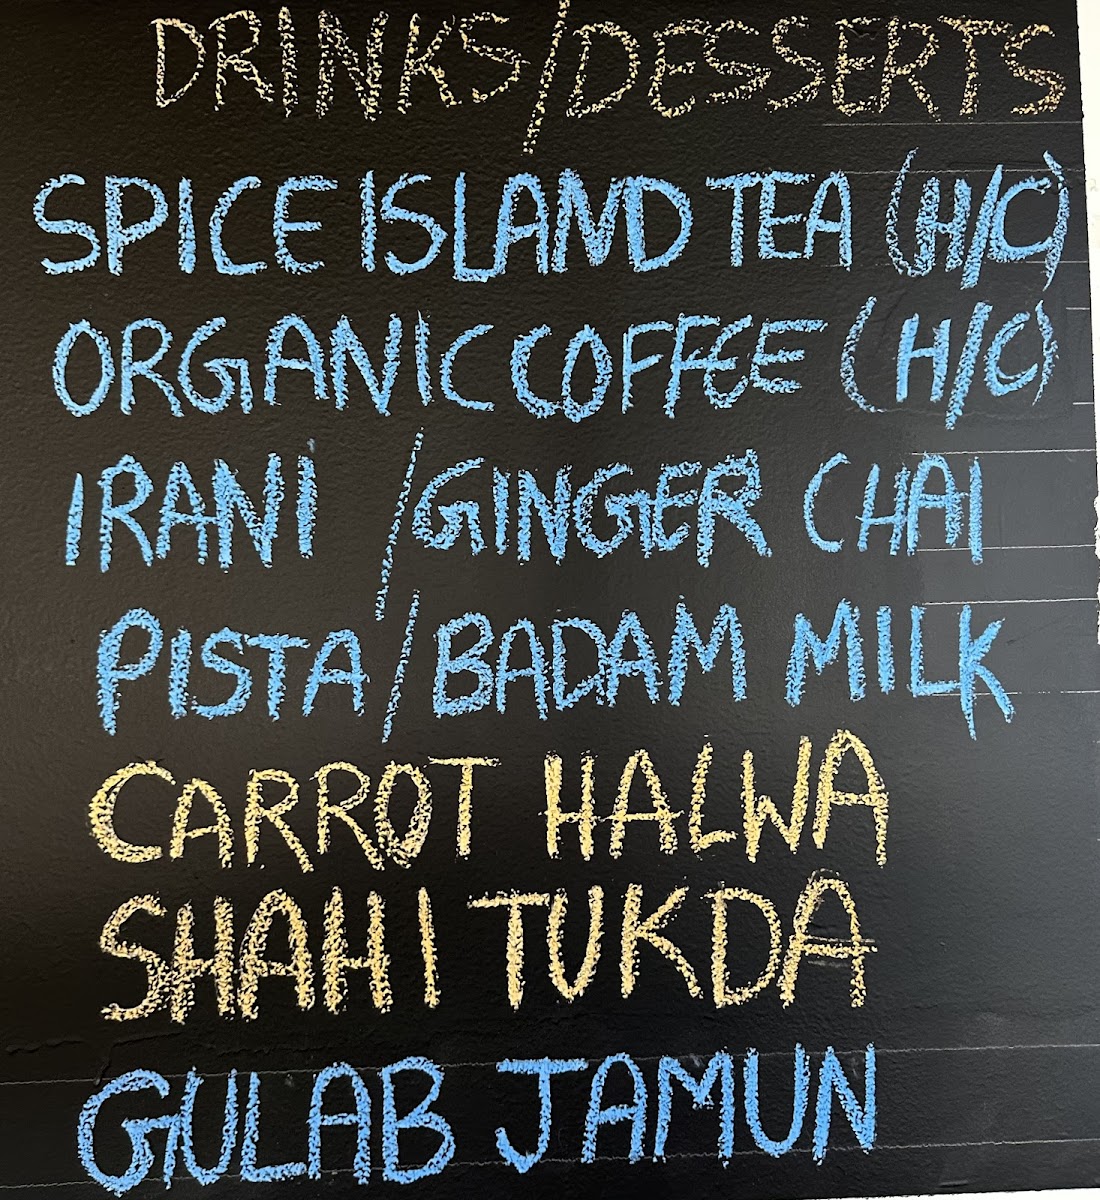 DRINKS/DESSERTS
SPICE ISLAND TEA (H/C)
ORGANIC COFFEE (H/C)
IRANI /GINGER CHAI
PISTA/BADAM MILK
CARROT HALWA
SHAHI TUKDA
GULAB JAMUN